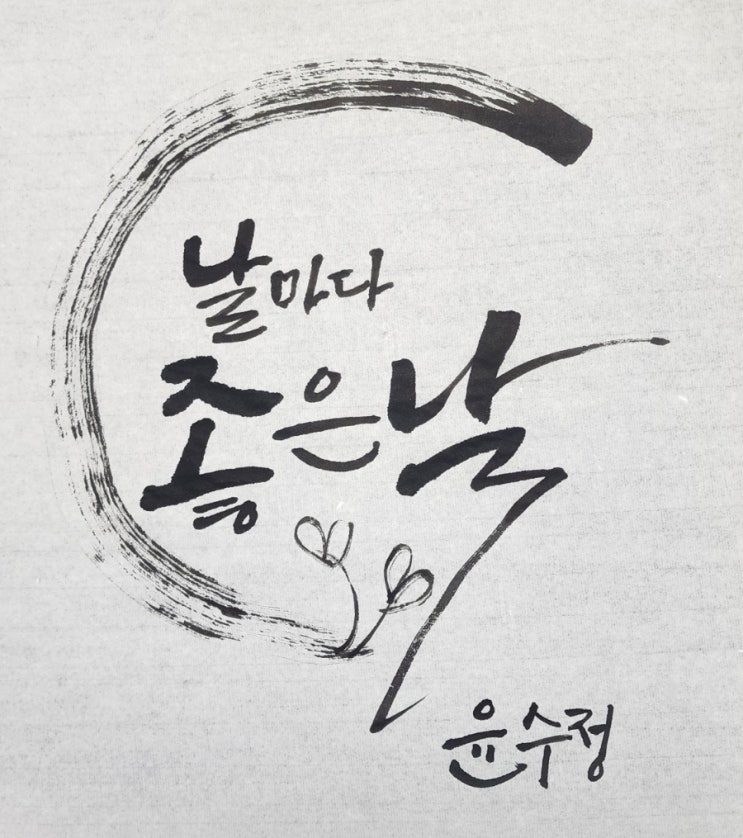 날마다
좋은날
윤수정